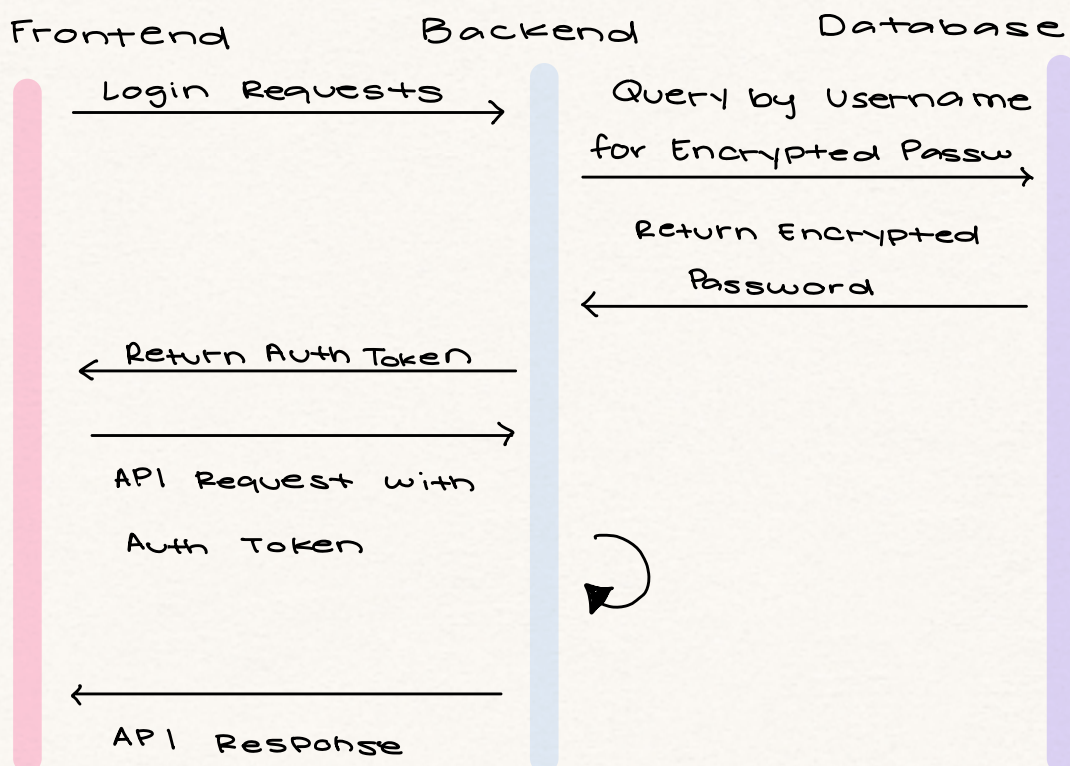 Frontend Backend Database
Login Requests
Query by Username
for Encrypted Passw
Return Encrypted
Password
Return Auth Token
API Request with
Auth Token
API Response